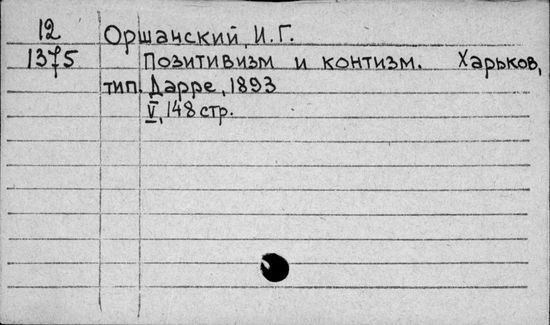 12 Оршанский, И.Г.
1375 Позитивизм и контизм. Харьков,
тип. Дарре, 1893
V, 148 стр.